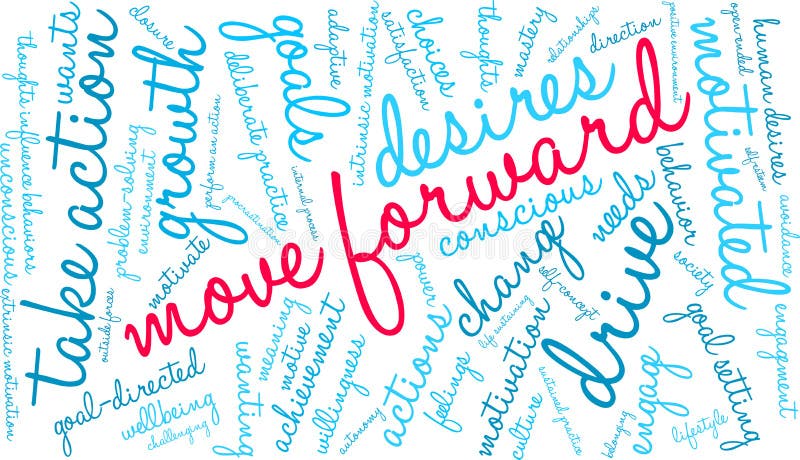 thoughts influence behaviors
unconscious
extrinsic motivation
wants
take action
outside forces
closure
problem-solving
environment
growth
motivate
perform an action
deliberate practice
procrastination
goals
internal process
adaptive
intrinsic motivation
satisfaction
choices
thoughts
mastery
relationships
direction
positive environment
open-ended
human desires
motivated
self-esteem
avoidance
desires
move forward
conscious
needs
behavior
society
change
self-concept
life sustaining
drive
power
goal-directed
wellbeing
challenging
wanting
meaning
motive
achievement
willingness
autonomy
actions
feelings
motivation
culture
sustained practice
belonging
engage
goal setting
lifestyle
engagement